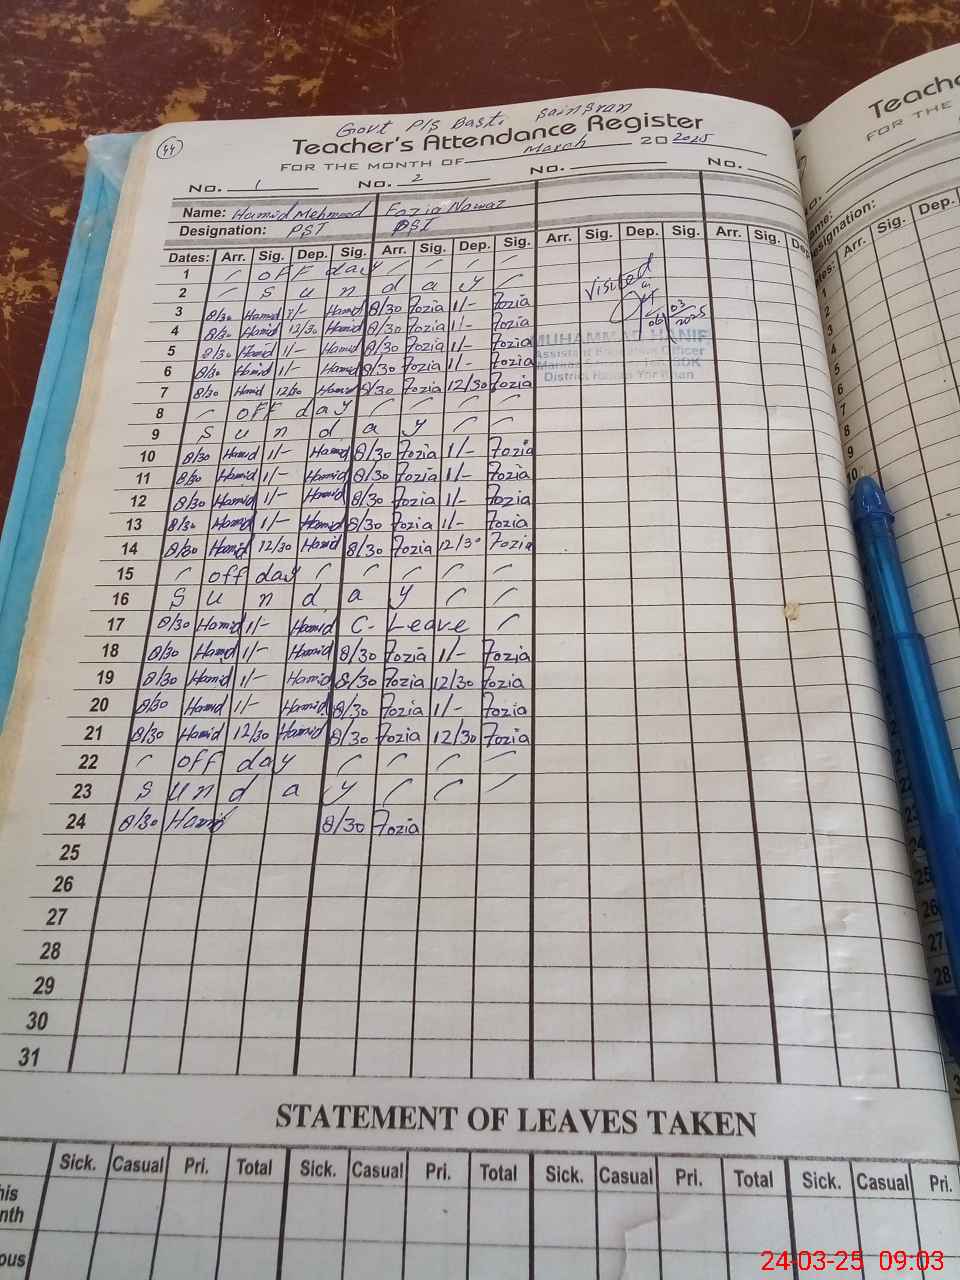 44
Govt P/S Basti
Teacher's Attendance Register
FOR THE MONTH OF March 20 2025
No. 1 No. 2 No. No.
Name: Hamid Mehmood Fozia Nawaz
Designation: PST PST
Dates: Arr. Sig. Dep. Sig. Arr. Sig. Dep. Sig. Arr. Sig. Dep. Sig. Arr. Sig.
1 off day
2 S u n d a y
3 8/30 Hamid 1/- Hamid 8/30 Fozia 1/- Fozia
4 8/30 Hamid 12/30 Hamid 8/30 Fozia 1/- Fozia
5 8/30 Hamid 1/- Hamid 8/30 Fozia 1/- Fozia
6 8/30 Hamid 1/- Hamid 8/30 Fozia 1/- Fozia
7 8/30 Hamid 12/30 Hamid 8/30 Fozia 12/30 Fozia
8 off day
9 S u n d a y
10 8/30 Hamid 1/- Hamid 8/30 Fozia 1/- Fozia
11 8/30 Hamid 1/- Hamid 8/30 Fozia 1/- Fozia
12 8/30 Hamid 1/- Hamid 8/30 Fozia 1/- Fozia
13 8/30 Hamid 1/- Hamid 8/30 Fozia 1/- Fozia
14 8/30 Hamid 12/30 Hamid 8/30 Fozia 12/30 Fozia
15 off day
16 S u n d a y
17 8/30 Hamid 1/- Hamid C- Leave
18 8/30 Hamid 1/- Hamid 8/30 Fozia 1/- Fozia
19 8/30 Hamid 1/- Hamid 8/30 Fozia 12/30 Fozia
20 8/30 Hamid 1/- Hamid 8/30 Fozia 1/- Fozia
21 8/30 Hamid 12/30 Hamid 8/30 Fozia 12/30 Fozia
22 off day
23 S u n d a y
24 8/30 Hamid 8/30 Fozia
25
26
27
28
29
30
31
visited
06/03
2025
MUHAMMAD HANIF
Assistant Education Officer
District Rahim Yar Khan
STATEMENT OF LEAVES TAKEN
Sick. Casual Pri. Total Sick. Casual Pri. Total Sick. Casual Pri. Total Sick. Casual Pri.
Teache
FOR THE
Designation:
Arr. Sig. Dep.
24-03-25 09:03